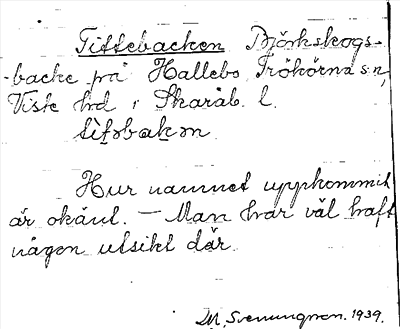 Tittebacken Björkskogs-
-backe på Hallebo, Trökörna sn,
Viste hd i Skarab. l.
titəbakən
Hur namnet uppkommit
är okänt. — Man har väl haft
någon utsikt där.
M. Svenungsson. 1939.